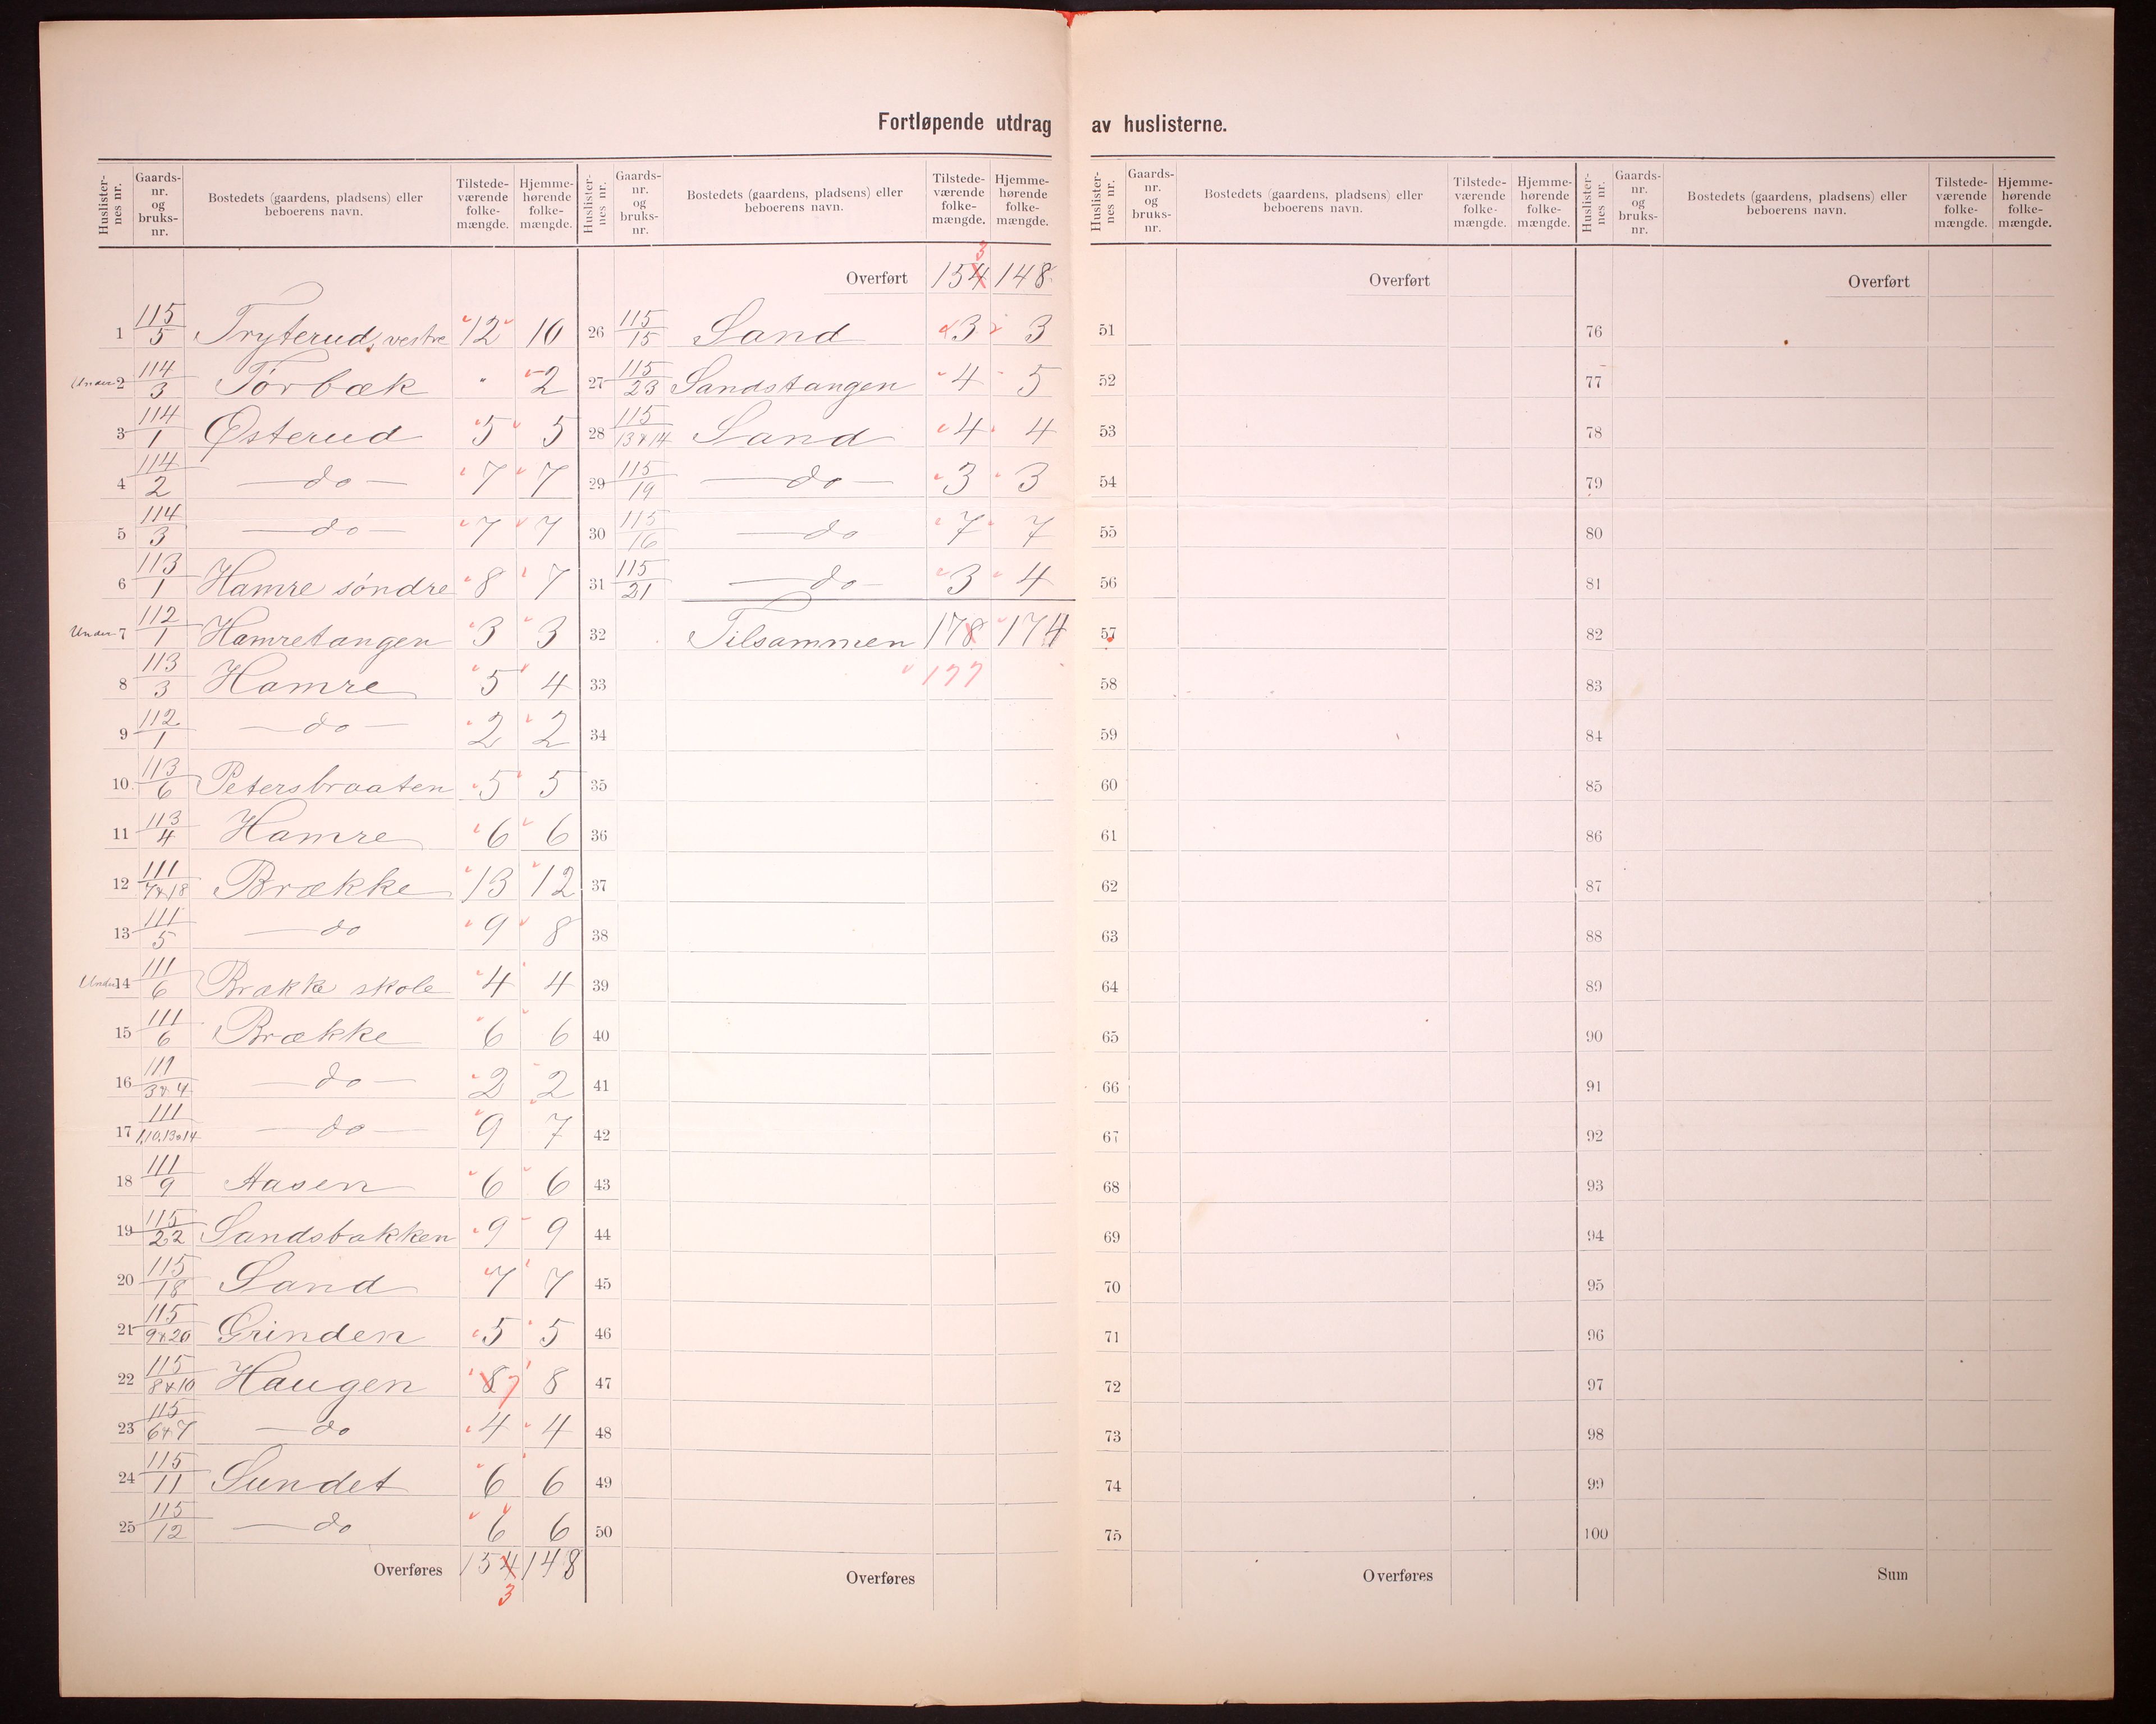 Fortløpende utdrag av huslisterne.
Huslisternes nr. Gaards-nr. og bruks-nr. Bostedets (gaardens, pladsens) eller beboerens navn. Tilstedeværende folkemængde. Hjemmehørende folkemængde.
1 115/5 Tryterud, vestre 12 10
Under 2 114/3 Torbæk " 2
3 114/1 Østerud 5 5
4 114/2 — do — 7 7
5 114/3 — do — 7 7
6 113/1 Hamre søndre 8 7
Under 7 112/1 Hamretangen 3 3
8 113/3 Hamre 5 4
9 112/1 — do — 2 2
10 113/6 Petersbraaten 5 5
11 113/4 Hamre 6 6
12 111/7&18 Brække 13 12
13 111/5 — do 9 8
Under 14 111/6 Brække skole 4 4
15 111/6 Brække 6 6
16 111/3&4 — do — 2 2
17 111/1,10,13&14 — do — 9 7
18 111/9 Aasen 6 6
19 115/22 Sandsbakken 9 9
20 115/18 Sand 7 7
21 115/9&20 Grinden 5 5
22 115/8&10 Haugen 8 7 8
23 115/6&7 — do 4 4
24 115/11 Sundet 6 6
25 115/12 — do 6 6
Overføres 154 148
3
Huslisternes nr. Gaards-nr. og bruks-nr. Bostedets (gaardens, pladsens) eller beboerens navn. Tilstedeværende folkemængde. Hjemmehørende folkemængde.
3
Overført 154 148
26 115/15 Sand 3 3
27 115/23 Sandstangen 4 5
28 115/13&14 Sand 4 4
29 115/19 — do — 3 3
30 115/16 — do 7 7
31 115/21 — do — 3 4
32 Tilsammen 178 174
33 177
34
35
36
37
38
39
40
41
42
43
44
45
46
47
48
49
50
Overføres
Huslisternes nr. Gaards-nr. og bruks-nr. Bostedets (gaardens, pladsens) eller beboerens navn. Tilstedeværende folkemængde. Hjemmehørende folkemængde.
Overført
51
52
53
54
55
56
57
58
59
60
61
62
63
64
65
66
67
68
69
70
71
72
73
74
75
Overføres
Huslisternes nr. Gaards-nr. og bruks-nr. Bostedets (gaardens, pladsens) eller beboerens navn. Tilstedeværende folkemængde. Hjemmehørende folkemængde.
Overført
76
77
78
79
80
81
82
83
84
85
86
87
88
89
90
91
92
93
94
95
96
97
98
99
100
Sum